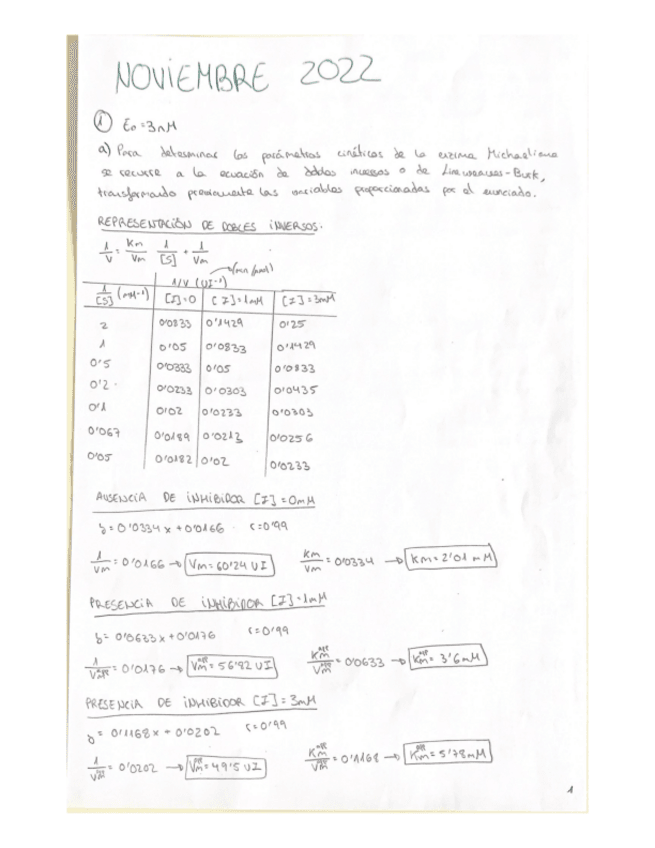 NOVIEMBRE 2022
① E₀ = 3nM
a) Para determinar los parámetros cinéticos de la enzima Michaeliana
se recurre a la ecuación de dobles inversos o de Lineweaver-Burk,
transformando previamente las variables proporcionadas por el enunciado.
REPRESENTACIÓN DE DOBLES INVERSOS:
1/V = Km/Vm 1/[S] + 1/Vm
1/V (UI⁻¹) (min/µmol)
1/[S] (mM⁻¹) [I]=0 [I]=1mM [I]=3mM
2 0'0833 0'1429 0'25
1 0'05 0'0833 0'1429
0'5 0'0333 0'05 0'0833
0'2 0'0233 0'0303 0'0435
0'1 0'02 0'0233 0'0303
0'067 0'0189 0'0213 0'0256
0'05 0'0182 0'02 0'0233
AUSENCIA DE INHIBIDOR [I]=0mM
y = 0'0334x + 0'0166 r=0'99
1/Vm = 0'0166 → Vm = 60'24 UI Km/Vm = 0'0334 → Km = 2'01 mM
PRESENCIA DE INHIBIDOR [I]=1mM
y = 0'0633x + 0'0176 r=0'99
1/Vm^app = 0'0176 → Vm^app = 56'82 UI Km^app/Vm^app = 0'0633 → Km^app = 3'6 mM
PRESENCIA DE INHIBIDOR [I]=3mM
y = 0'1168x + 0'0202 r=0'99
1/Vm^app = 0'0202 → Vm^app = 49'5 UI Km^app/Vm^app = 0'1168 → Km^app = 5'78 mM
1